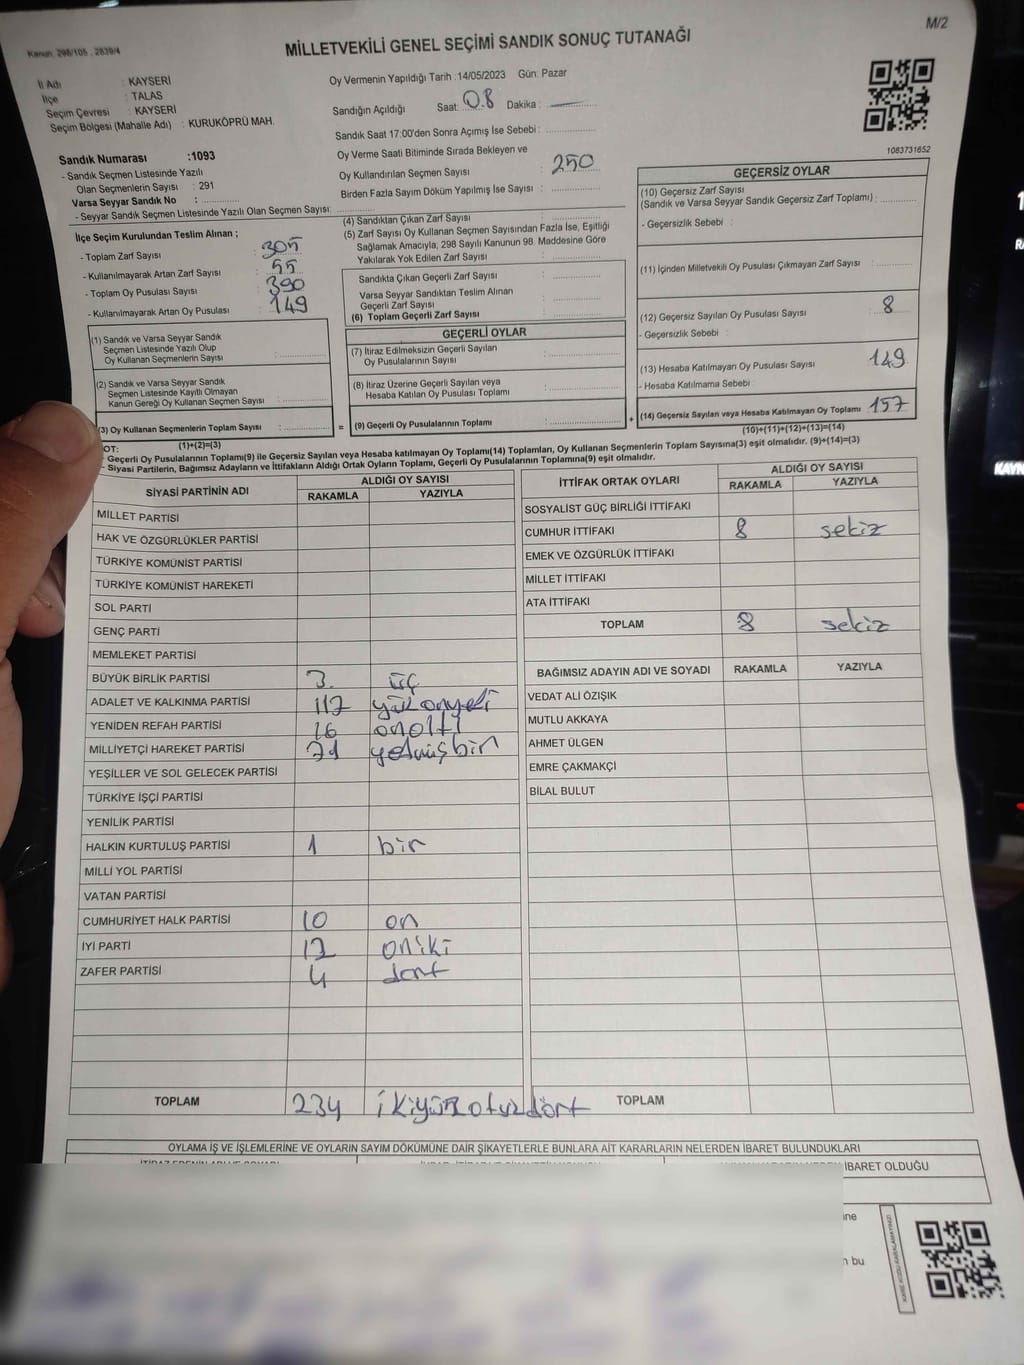 M/2
Kanun: 298/105 , 2839/4
MİLLETVEKİLİ GENEL SEÇİMİ SANDIK SONUÇ TUTANAĞI
İl Adı : KAYSERİ
İlçe : TALAS
Seçim Çevresi : KAYSERİ
Seçim Bölgesi (Mahalle Adı) : KURUKÖPRÜ MAH.
Sandık Numarası :1093
- Sandık Seçmen Listesinde Yazılı
Olan Seçmenlerin Sayısı : 291
Varsa Seyyar Sandık No :
- Seyyar Sandık Seçmen Listesinde Yazılı Olan Seçmen Sayısı:
Oy Vermenin Yapıldığı Tarih :14/05/2023 Gün: Pazar
Sandığın Açıldığı Saat: 08 Dakika :
Sandık Saat 17:00'den Sonra Açımış İse Sebebi :
Oy Verme Saati Bitiminde Sırada Bekleyen ve
Oy Kullandırılan Seçmen Sayısı : 250
Birden Fazla Sayım Döküm Yapılmış İse Sayısı :
1083731652
İlçe Seçim Kurulundan Teslim Alınan ;
- Toplam Zarf Sayısı : 305
- Kullanılmayarak Artan Zarf Sayısı : 55
- Toplam Oy Pusulası Sayısı : 390
- Kullanılmayarak Artan Oy Pusulası : 149
(1) Sandık ve Varsa Seyyar Sandık
Seçmen Listesinde Yazılı Olup
Oy Kullanan Seçmenlerin Sayısı :
(2) Sandık ve Varsa Seyyar Sandık
Seçmen Listesinde Kayıtlı Olmayan
Kanun Gereği Oy Kullanan Seçmen Sayısı :
(3) Oy Kullanan Seçmenlerin Toplam Sayısı :
(1)+(2)=(3)
(4) Sandıktan Çıkan Zarf Sayısı :
(5) Zarf Sayısı Oy Kullanan Seçmen Sayısından Fazla İse, Eşitliği
Sağlamak Amacıyla, 298 Sayılı Kanunun 98. Maddesine Göre
Yakılarak Yok Edilen Zarf Sayısı :
Sandıkta Çıkan Geçerli Zarf Sayısı :
Varsa Seyyar Sandıktan Teslim Alınan
Geçerli Zarf Sayısı :
(6) Toplam Geçerli Zarf Sayısı :
GEÇERLİ OYLAR
(7) İtiraz Edilmeksizin Geçerli Sayılan
Oy Pusulalarının Sayısı :
(8) İtiraz Üzerine Geçerli Sayılan veya
Hesaba Katılan Oy Pusulası Toplamı :
= (9) Geçerli Oy Pusulalarının Toplamı : +
GEÇERSİZ OYLAR
(10) Geçersiz Zarf Sayısı
(Sandık ve Varsa Seyyar Sandık Geçersiz Zarf Toplamı) :
- Geçersizlik Sebebi :
(11) İçinden Milletvekili Oy Pusulası Çıkmayan Zarf Sayısı :
(12) Geçersiz Sayılan Oy Pusulası Sayısı : 8
- Geçersizlik Sebebi :
(13) Hesaba Katılmayan Oy Pusulası Sayısı : 149
- Hesaba Katılmama Sebebi :
(14) Geçersiz Sayılan veya Hesaba Katılmayan Oy Toplamı 157
(10)+(11)+(12)+(13)=(14)
OT:
- Geçerli Oy Pusulalarının Toplamı(9) ile Geçersiz Sayılan veya Hesaba katılmayan Oy Toplamı(14) Toplamları, Oy Kullanan Seçmenlerin Toplam Sayısına(3) eşit olmalıdır. (9)+(14)=(3)
- Siyasi Partilerin, Bağımsız Adayların ve İttifakların Aldığı Ortak Oyların Toplamı, Geçerli Oy Pusulalarının Toplamına(9) eşit olmalıdır.
SİYASİ PARTİNİN ADI
ALDIĞI OY SAYISI
RAKAMLA YAZIYLA
MİLLET PARTİSİ
HAK VE ÖZGÜRLÜKLER PARTİSİ
TÜRKİYE KOMÜNİST PARTİSİ
TÜRKİYE KOMÜNİST HAREKETİ
SOL PARTİ
GENÇ PARTİ
MEMLEKET PARTİSİ
BÜYÜK BİRLİK PARTİSİ 3 üç
ADALET VE KALKINMA PARTİSİ 117 yük onyedi
YENİDEN REFAH PARTİSİ 16 onaltı
MİLLİYETÇİ HAREKET PARTİSİ 71 yetmişbir
YEŞİLLER VE SOL GELECEK PARTİSİ
TÜRKİYE İŞÇİ PARTİSİ
YENİLİK PARTİSİ
HALKIN KURTULUŞ PARTİSİ 1 bir
MİLLİ YOL PARTİSİ
VATAN PARTİSİ
CUMHURİYET HALK PARTİSİ 10 on
İYİ PARTİ 12 oniki
ZAFER PARTİSİ 4 dört
TOPLAM 234 ikiyüzotuzdört
İTTİFAK ORTAK OYLARI
ALDIĞI OY SAYISI
RAKAMLA YAZIYLA
SOSYALİST GÜÇ BİRLİĞİ İTTİFAKI
CUMHUR İTTİFAKI 8 sekiz
EMEK VE ÖZGÜRLÜK İTTİFAKI
MİLLET İTTİFAKI
ATA İTTİFAKI
TOPLAM 8 sekiz
BAĞIMSIZ ADAYIN ADI VE SOYADI RAKAMLA YAZIYLA
VEDAT ALİ ÖZIŞIK
MUTLU AKKAYA
AHMET ÜLGEN
EMRE ÇAKMAKÇI
BİLAL BULUT
TOPLAM
OYLAMA İŞ VE İŞLEMLERİNE VE OYLARIN SAYIM DÖKÜMÜNE DAİR ŞİKAYETLERLE BUNLARA AİT KARARLARIN NELERDEN İBARET BULUNDUKLARI
İBARET OLDUĞU
ine
n bu